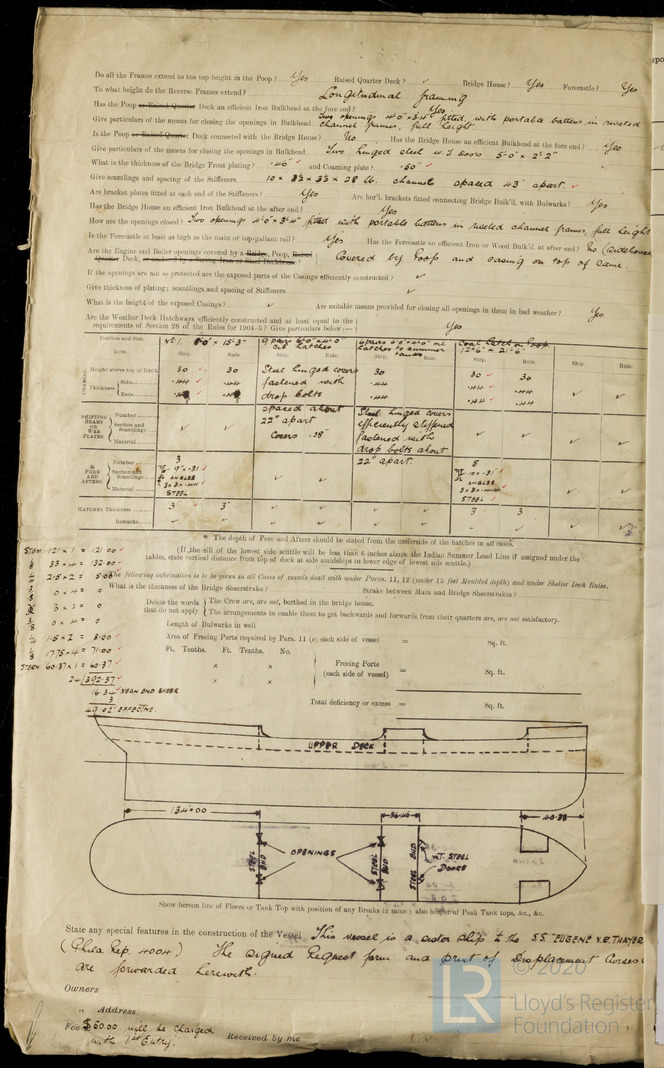 Do all the Frames extend to the top height in the Poop? Yes Raised Quarter Deck? ✓ Bridge House? Yes Forecastle? Yes
To what height do the Reverse Frames extend? Longitudinal framing
Has the Poop or Raised Quarter Deck an efficient Iron Bulkhead at the fore end? Yes
Give particulars of the means for closing the openings in Bulkhead Two openings 4'0" x 3'4" fitted with portable battens in riveted channel frames, full height
Is the Poop or Raised Quarter Deck connected with the Bridge House? No Has the Bridge House an efficient Bulkhead at the fore end? Yes
Give particulars of the means for closing the openings in Bulkhead Two hinged steel W.T. Doors 5'0" x 2'2"
What is the thickness of the Bridge Front plating? .46" ✓ and Coaming plate? .50" ✓
Give scantlings and spacing of the Stiffeners 10 x 3½ x 3½ x 28 lb. channels spaced 43" apart. ✓
Are bracket plates fitted at each end of the Stiffeners? Yes Are hor'l. brackets fitted connecting Bridge Bulk'd. with Bulwarks? Yes
Has the Bridge House an efficient Iron Bulkhead at the after end? Yes
How are the openings closed? Two openings 4'0" x 3'4" fitted with portable battens in riveted channel frames, full height
Is the Forecastle at least as high as the main or top-gallant rail? Yes Has the Forecastle an efficient Iron or Wood Bulk'd. at after end? No
Are the Engine and Boiler openings covered by a Bridge, Poop, Raised
Quarter Deck, Covered by Poop and casing on top of same.
If the openings are not so protected are the exposed parts of the Casings efficiently constructed? ✓
Give thickness of plating; scantlings and spacing of Stiffeners ✓
What is the height of the exposed Casings? ✓ Are suitable means provided for closing all openings in them in bad weather? Yes
Are the Weather Deck Hatchways efficiently constructed and at least equal to the
requirements of Section 28 of the Rules for 1904-5? Give particulars below:— Yes
Position and Size. No 1. 8'0" x 15'3" 9 pairs 6'0" x 4'0" oil hatches 6 pairs 4'0" x 4'0" oil hatches to summer tanks Coal hatch on Poop. 12'6" x 21'6"
Item. Ship. Rule. Ship. Rule. Ship. Rule. Ship. Rule. Ship. Rule. Ship. Rule.
COAMING. Height above top of Deck 30 ✓ 30 Steel hinged covers 30 30 ✓ 30
Thickness Sides .44 ✓ .44 fastened with .44 .44 ✓ .44 ✓ ✓
Ends drop bolts .44 .44 ✓ .44
SHIFTING BEAMS OR WEB PLATES. Number spaced about Steel hinged covers
Section and Scantlings ✓ ✓ 22" apart efficiently stiffened ✓ ✓ ✓ ✓
Material Covers .38" fastened with drop bolts about
* FORE AND AFTERS. Number 3 22" apart. 5
Section and Scantlings 9" x .31 ✓ ✓ ✓ 10 x .31 ✓ ✓ ✓
ANGLES 3 x 3 x .44 ✓ ANGLES 3 x 3 x .44 ✓
Material STEEL STEEL
HATCHES Thickness 3" 3" ✓ ✓ ✓ ✓ 3 3 ✓ ✓
Remarks ✓ ✓ ✓ ✓ ✓ ✓ ✓ ✓ ✓ ✓
* The depth of Fore and Afters should be stated from the underside of the hatches in all cases.
(If the sill of the lowest side scuttle will be less than 6 inches above the Indian Summer Load Line if assigned under the
tables, state vertical distance from top of deck at side amidships to lower edge of lowest side scuttle.)
STEM 121 x 1 = 121.00 ✓
33 x 4 = 132.00 ✓
2.5 x 2 = 5.00
0 x 4 = 0
3 x 2 = 0
0 x 4 = 0
1.5 x 2 = 3.00 ✓
17.75 x 4 = 71.00 ✓
STERN 60.37 x 1 = 60.37 ✓
24 | 392.37 ✓
16.34 ✓ MEAN END SHEER
3
49.02 EFFECTIVE.
The following information is to be given in all Cases of vessels dealt with under Paras. 11, 12 (under 15 feet Moulded depth) and under Shelter Deck Rules.
What is the thickness of the Bridge Sheerstrake? Strake between Main and Bridge Sheerstrakes?
Delete the words that do not apply The Crew are, are not, berthed in the bridge house.
The arrangements to enable them to get backwards and forwards from their quarters are, are not, satisfactory.
Length of Bulwarks in well
Area of Freeing Ports required by Para. 11 (e) each side of vessel = Sq. ft.
Ft. Tenths. Ft. Tenths. No.
× × Freeing Ports
(each side of vessel) = Sq. ft.
× ×
Total deficiency or excess = Sq. ft.
UPPER DECK
134.00 36.46 40.38
STEEL BHD OPENINGS STEEL BHD STEEL BHD WT. STEEL DOORS
Show hereon line of Floors or Tank Top with position of any Breaks in same; also height of Peak Tank tops, &c., &c.
State any special features in the construction of the Vessel This vessel is a sister ship to the SS "EUGENE V.R. THAYER
(Phila Rep. 4004) The signed Request form and print of Displacement Curves
are forwarded herewith.
Owners
" Address
Fee $50.00 will be charged
with 1st Entry. Received by me
© 2020
LR
Lloyd's Register
Foundation